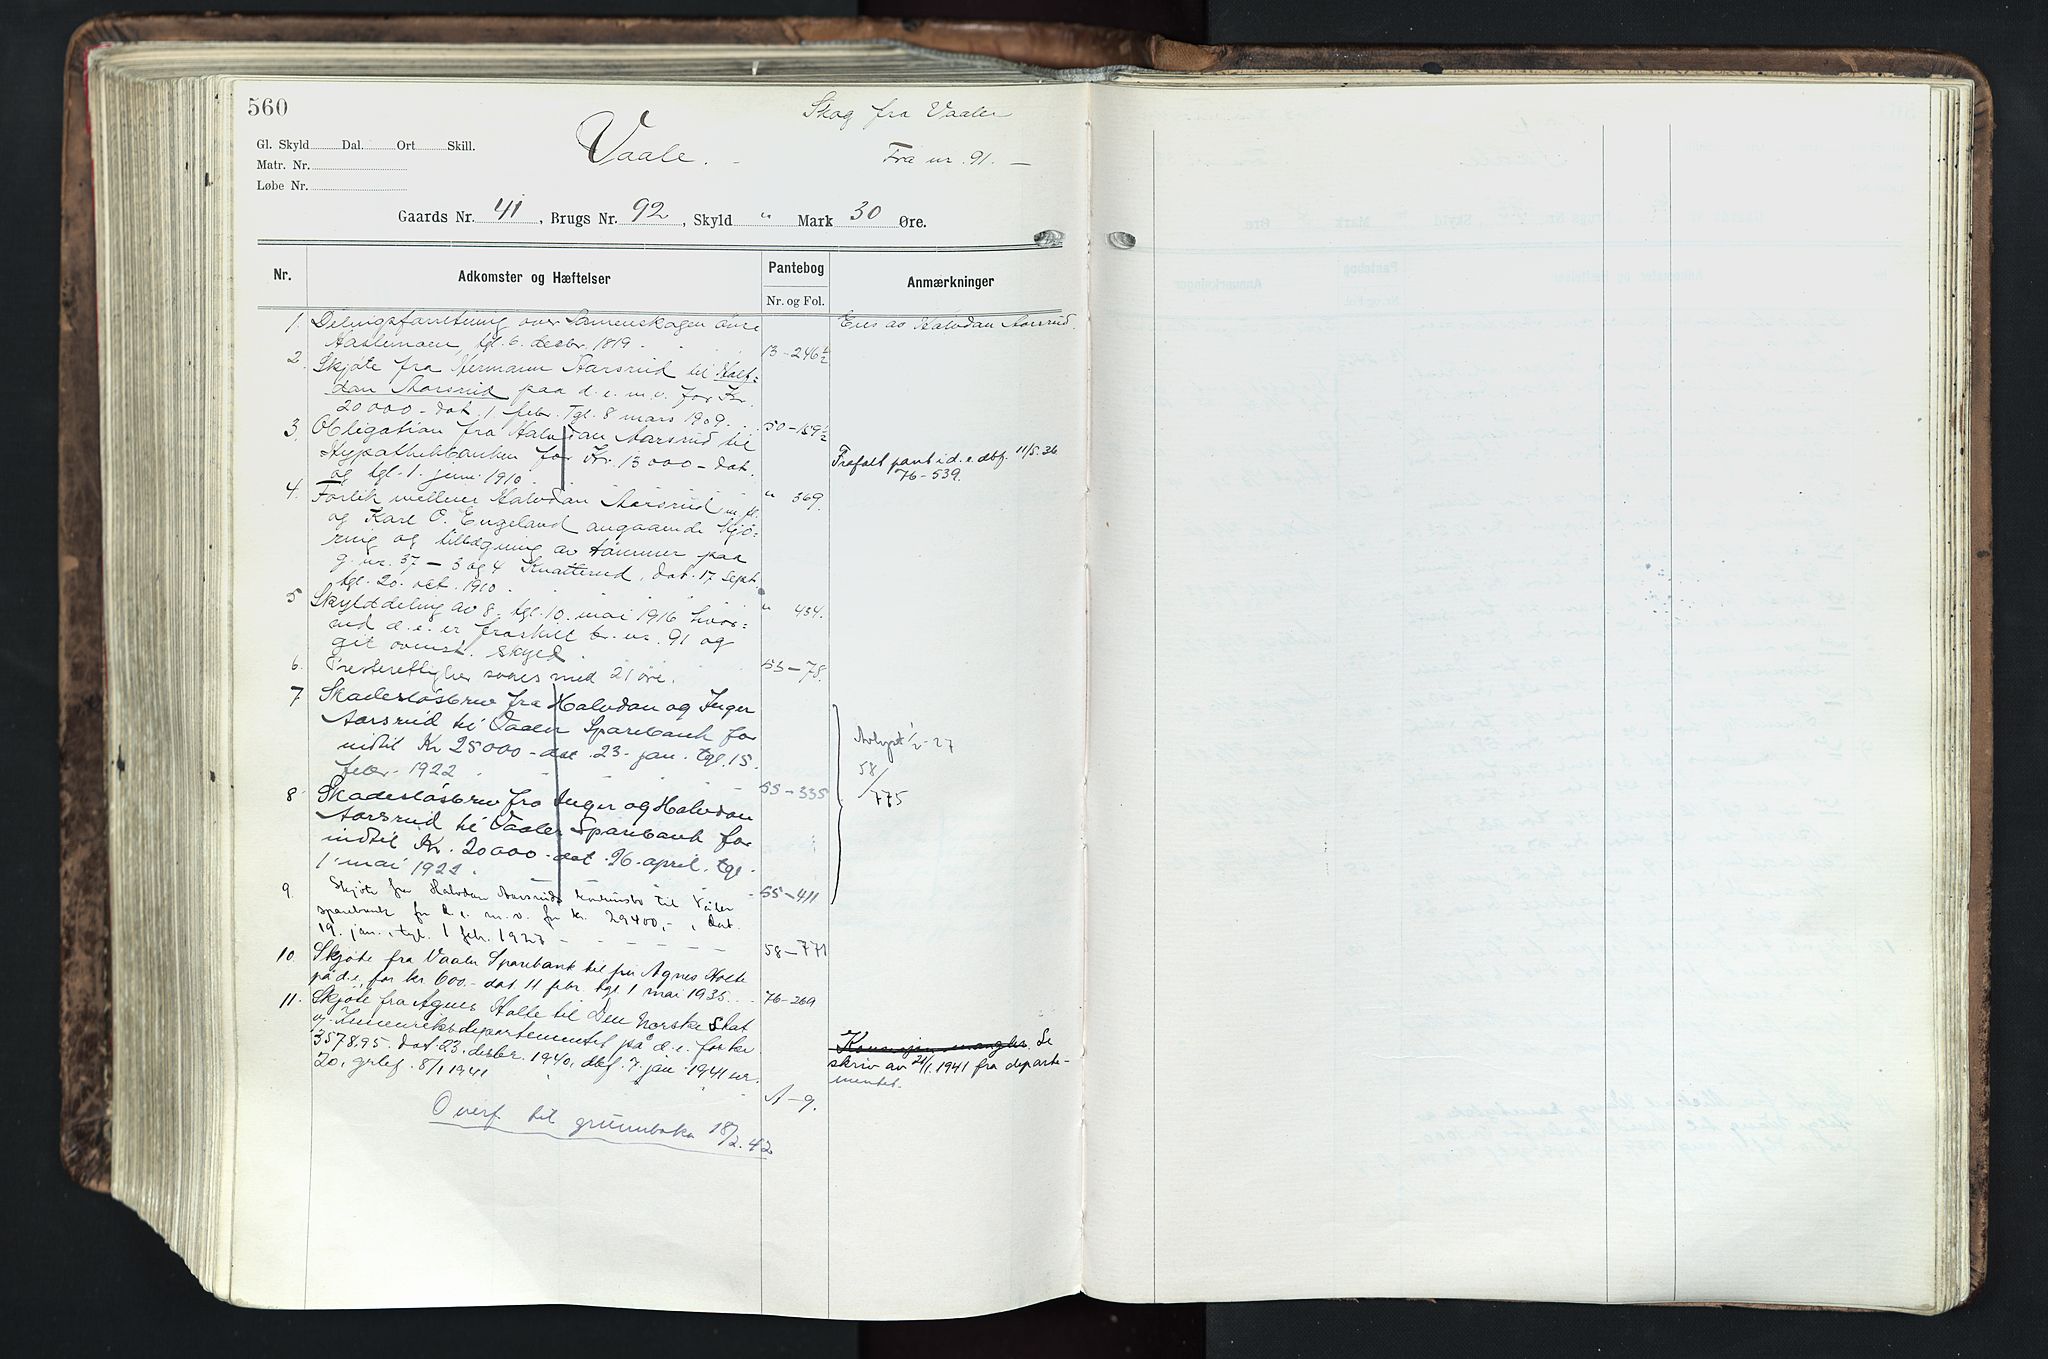 560
Skog fra Vaaler
Gl. Skyld Dal. Ort Skill.
Vaale.
Fra nr. 91. —
Matr. Nr.
Løbe Nr.
Gaards Nr. 41, Brugs Nr. 92, Skyld " Mark 30 Øre.
Nr. Adkomster og Hæftelser Pantebog Nr. og Fol. Anmærkninger
1. Delingsforretning over Sameieskogen øvre Eies av Halvdan Aarsrud.
Haslemoen, tgl. 6. decbr. 1819. 13 – 246 1/2
2. Skjøte fra Hermann Aarsrud til Half=
dan Aarsrud paa d. e. m. v. for Kr.
20000 – dat. 1 febr. Tgl. 8 mars 1909. 50 – 159 1/2
3. Obligation fra Halvdan Aarsrud til
Hypothekbanken for Kr. 13000 – dat. Frafalt pant i d. e. dbf. 11/5. 36
og tgl. 1. juni 1910. " 369. 76 – 539.
4. Forlik mellem Halvdan Aarsrud m. fl.
og Karl O. Engeland angaaende kjø-
ring og tillægning av tømmer paa
g. nr. 37 – 3 og 4 Knatterud, dat. 17 sept.
tgl. 20. oct. 1910. " 434.
5 Skylddeling av 8. tgl. 10. mai 1916 hvor=
ved d. e. er fraskilt br. nr. 91 og
git ovenst. skyld. 53 – 78.
6. Presterettighe svares med 21 øre.
7 Skadesløsbrev fra Halvdan og Inger
Aarsrud til Vaaler Sparebank for
indtil Kr 25000 – dat. 23. jan. tgl. 15. Avlyst 1/2 - 27
febr. 1922. 55 – 335 58/775
8 Skadesløsbrev fra Inger og Halvdan
Aarsrud til Vaaler Sparebank for
indtil Kr. 20000 – dat. 26. april. tgl.
1 mai 1922. 55 – 411
9 Skjøte fra Halvdan Aarsruds konkursbo til Våler
sparebank for d. e. m. v. for kr. 29400,-, dat.
19. jan., tgl. 1 febr. 1927 58 – 771
10 Skjøte fra Vaaler Sparebank til fru Agnes Holte
på d. e., for kr 600.- dat 11 febr. tgl 1 mai 1935. 76-269
11. Skjøte fra Agnes Holte til Den Norske Stat
v. Innenriksdepartementet på d. e. for kr. Konsesjon mangler. Se
3578.95. dat. 23. desbr. 1940, dbf. 7. jan. 1941 nr. skriv av 21/1. 1941 fra departe-
20, grlef. 8/1 1941 A – 9. mentet.
Overf. til grunnboka 18/2. 42